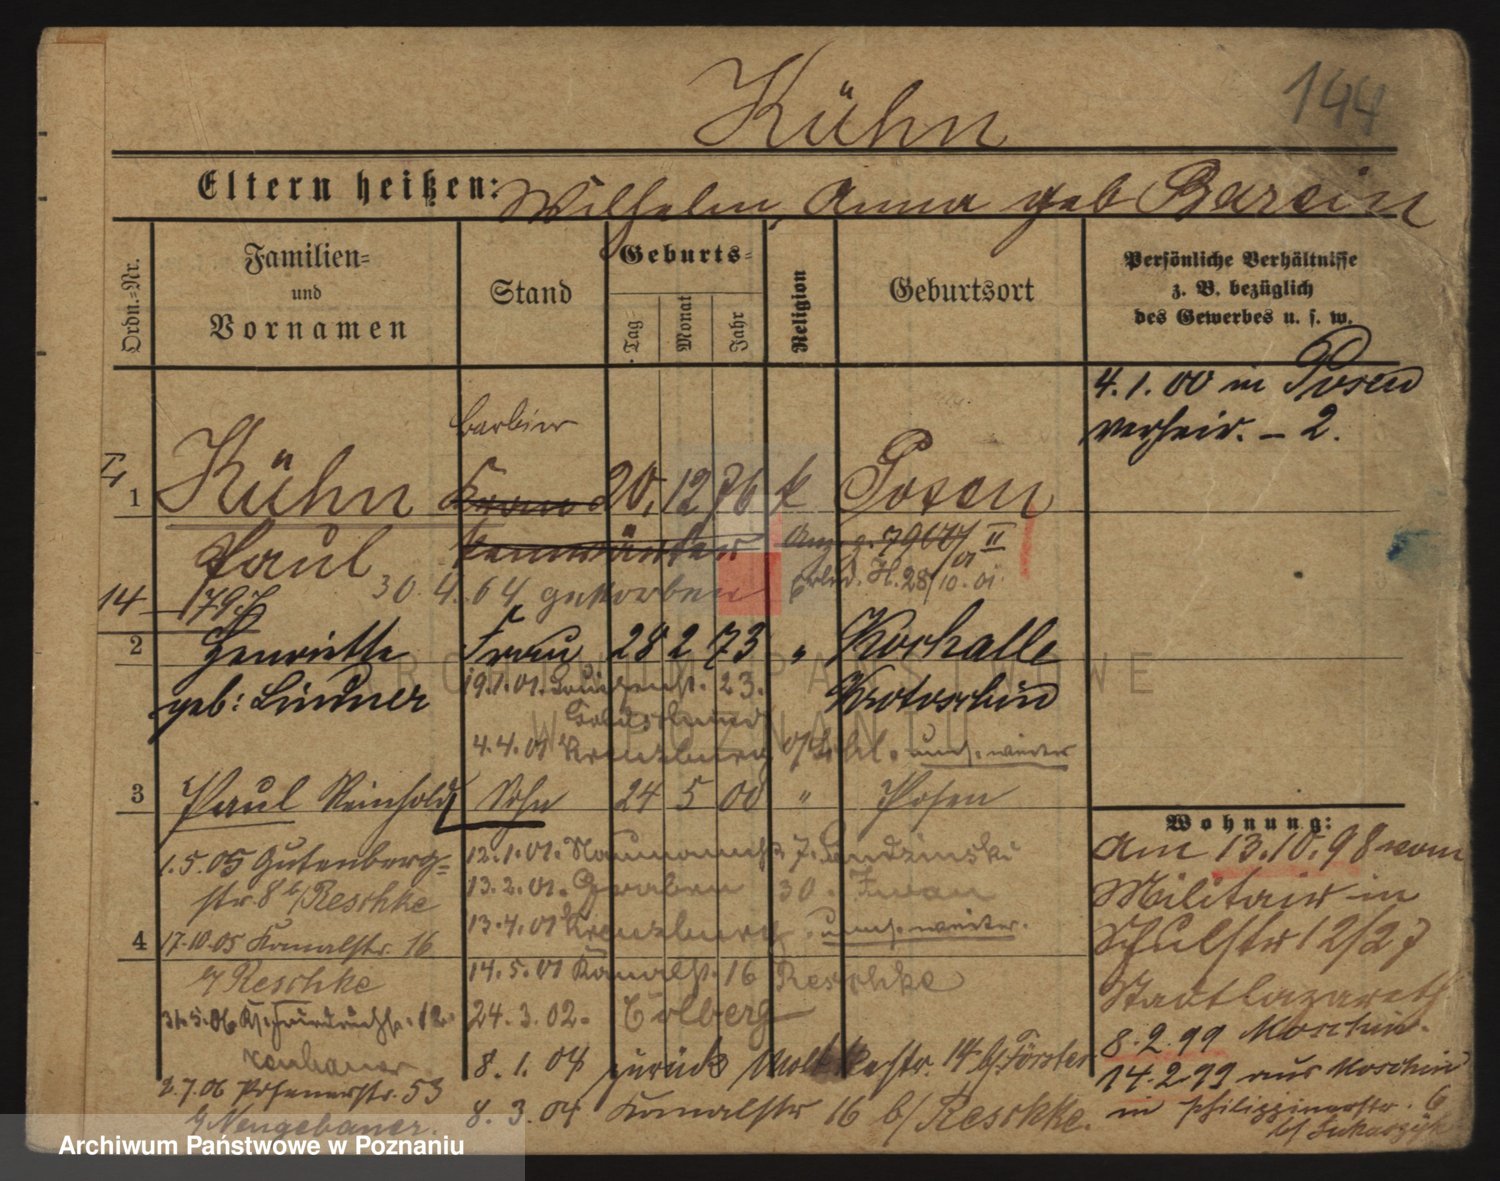 144
Kühn
Eltern heißen: Wilhelm, Anna geb Barcin
Ordn.-Nr.
Familien- und Vornamen
Stand
Geburts-
Tag
Monat
Jahr
Religion
Geburtsort
Persönliche Verhältnisse
z. B. bezüglich
des Gewerbes u. s. w.
4.1.00 in Posen
verheir. – 2.
Barbier
1 Kühn 20. 12 76 k Posen
Paul
30 4. 64 gestorben
14 – 1797
2 Henriette Frau 28 2 73 " Koshalle
geb: Lindner Krotoschin
19.1.01. 23.
4.4.01 Kreuzburg O/Schl. umh. weiter
3 Paul Reinhold Sohn 24 5 00 " Posen
Wohnung:
Am 13.10.98 vom
Militair in
Schulstr 12/27
Stadtlazareth
8.2.99 Moschin.
14.2.99 aus Moschin
in Philippinerstr. 6
b/ Lukaszyk
12.1.01. Naumannstr. 7.
13.2.01. Graben 30. Iwan
13.4.01 Kreuzburg. umh. weiter.
14.5.01 Kanalstr. 16 Reschke
24.3.02. Colberg
8.1.04 zurück Moltkestr. 14 b/ Förster
8.3.04 Kanalstr 16 b/ Reschke.
1.5.05 Gutenberg-
str. 8 b/ Reschke
4 17.10.05 Kanalstr. 16
b/ Reschke
31.5.06 Kl. 12.
2.7.06 Posenerstr. 53
b/ Neugebauer.
ARCHIWUM PAŃSTWOWE
W POZNANIU
Archiwum Państwowe w Poznaniu